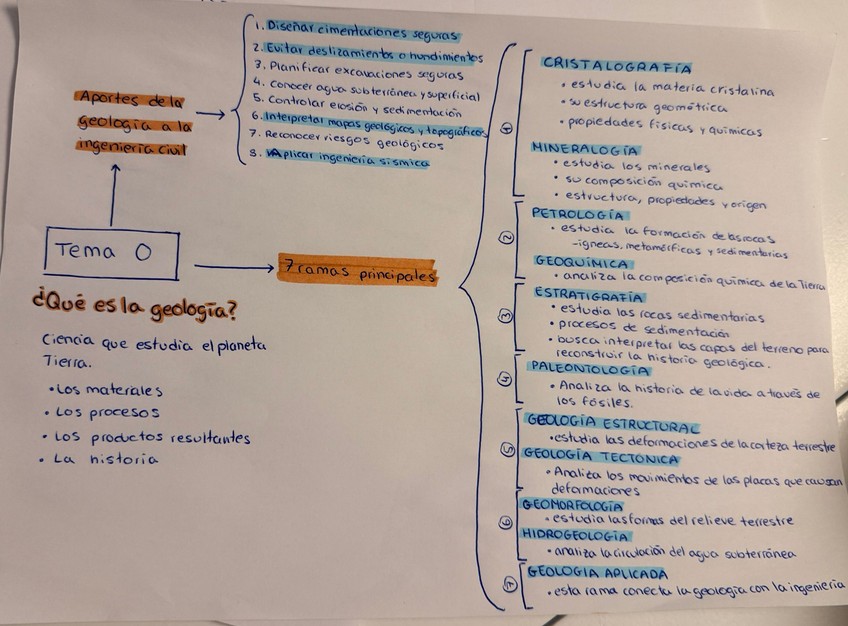 1. Diseñar cimentaciones seguras
2. Evitar deslizamientos o hundimientos
3. Planificar excavaciones seguras
4. Conocer agua subterránea y superficial
5. Controlar erosión y sedimentación
6. Interpretar mapas geológicos y topográficos
7. Reconocer riesgos geológicos
8. Aplicar ingeniería sísmica
Aportes de la
geología a la
ingeniería civil
Tema 0
¿Qué es la geología?
Ciencia que estudia el planeta
Tierra.
• Los materiales
• Los procesos
• Los productos resultantes
• La historia
7 ramas principales
1
CRISTALOGRAFÍA
• estudia la materia cristalina
• su estructura geométrica
• propiedades físicas y químicas
MINERALOGÍA
• estudia los minerales
• su composición química
• estructura, propiedades y origen
2
PETROLOGÍA
• estudia la formación de las rocas
- igneas, metamórficas y sedimentarias
GEOQUÍMICA
• analiza la composición química de la Tierra
3
ESTRATIGRAFÍA
• estudia las rocas sedimentarias
• procesos de sedimentación
• busca interpretar las capas del terreno para
reconstruir la historia geológica.
4
PALEONTOLOGÍA
• Analiza la historia de la vida a través de
los fósiles.
5
GEOLOGÍA ESTRUCTURAL
• estudia las deformaciones de la corteza terrestre
GEOLOGÍA TECTONICA
• Analiza los movimientos de las placas que causan
deformaciones
6
GEOMORFOLOGÍA
• estudia las formas del relieve terrestre
HIDROGEOLOGÍA
• analiza la circulación del agua subterránea
7
GEOLOGIA APLICADA
• esta rama conecta la geología con la ingeniería